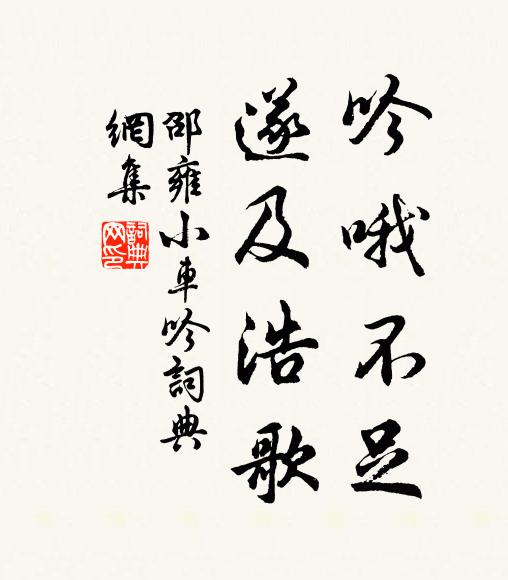 吟哦不足
遂及浩歌
邵雍小車吟詞典
網集
詞典
网印